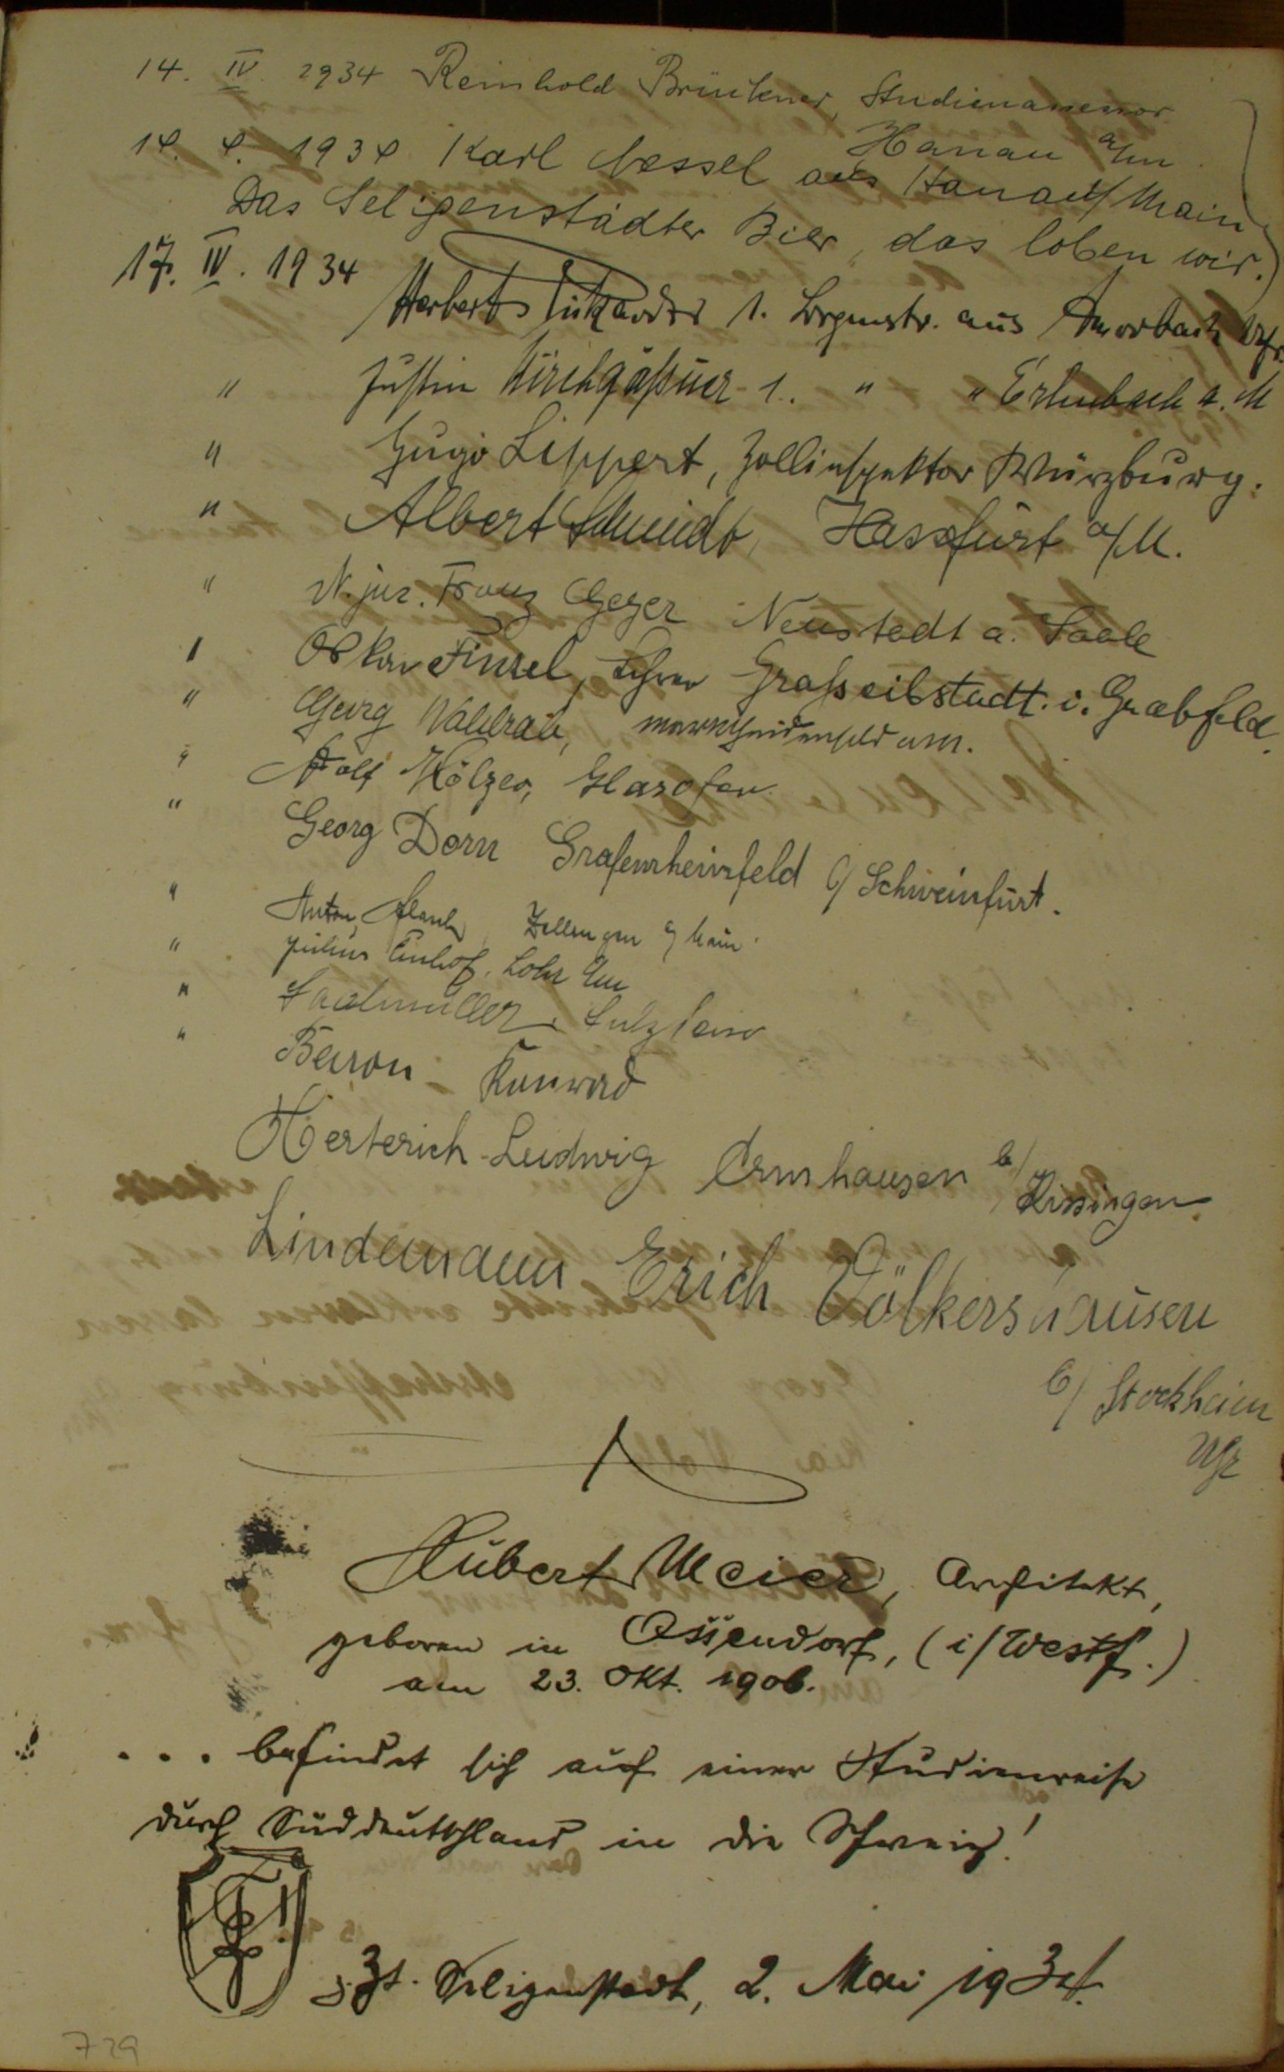 14. IV. 1934 Reinhold Brückner, Studienassessor
Hanau a/m
14. 4. 1934 Karl Nessel aus Hanau/Main
Das Seligenstädter Bier, das loben wir.
17. IV. 1934 Herbert 1. Bürgermstr. aus Amorbach Ufr.
" Justin Kirchgäßner 1. " " Erlenbach a. M
" Hugo Lippert, Zollinspektor Würzburg.
" Albert Schmidt, Hassfurt a/M.
" Franz Geyer Neustadt a. Saale
" Oskar Finsel, Lehrer Großeibstadt i. Grabfeld.
" Georg Waldrab, Marktheidenfeld a/M.
" Adolf Hölzer, Glasofen
" Georg Dorn Grafenrheinfeld b/ Schweinfurt.
" Anton Zellingen a/ Main.
" Julius Einhof, Lohr a/m
" Saalmüller, Sulzfeld
" Baron Konrad
Herterich Ludwig Arnshausen b/ Kissingen
Lindemann Erich Völkershausen
b/ Stockheim
Ufr
Hubert Meier, Architekt,
geboren in Ossendorf, (i/Westf.)
am 23. Okt. 1906.
... befindet sich auf einer Studienreise
durch Süddeutschland in die Schweiz!
z. Zt. Seligenstadt, 2. Mai 1934.
729